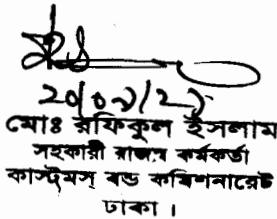 মোঃ রফিকুল ইসলাম
সহকারী রাজস্ব কর্মকর্তা
কাস্টমস্ বন্ড কমিশনারেট
ঢাকা ।